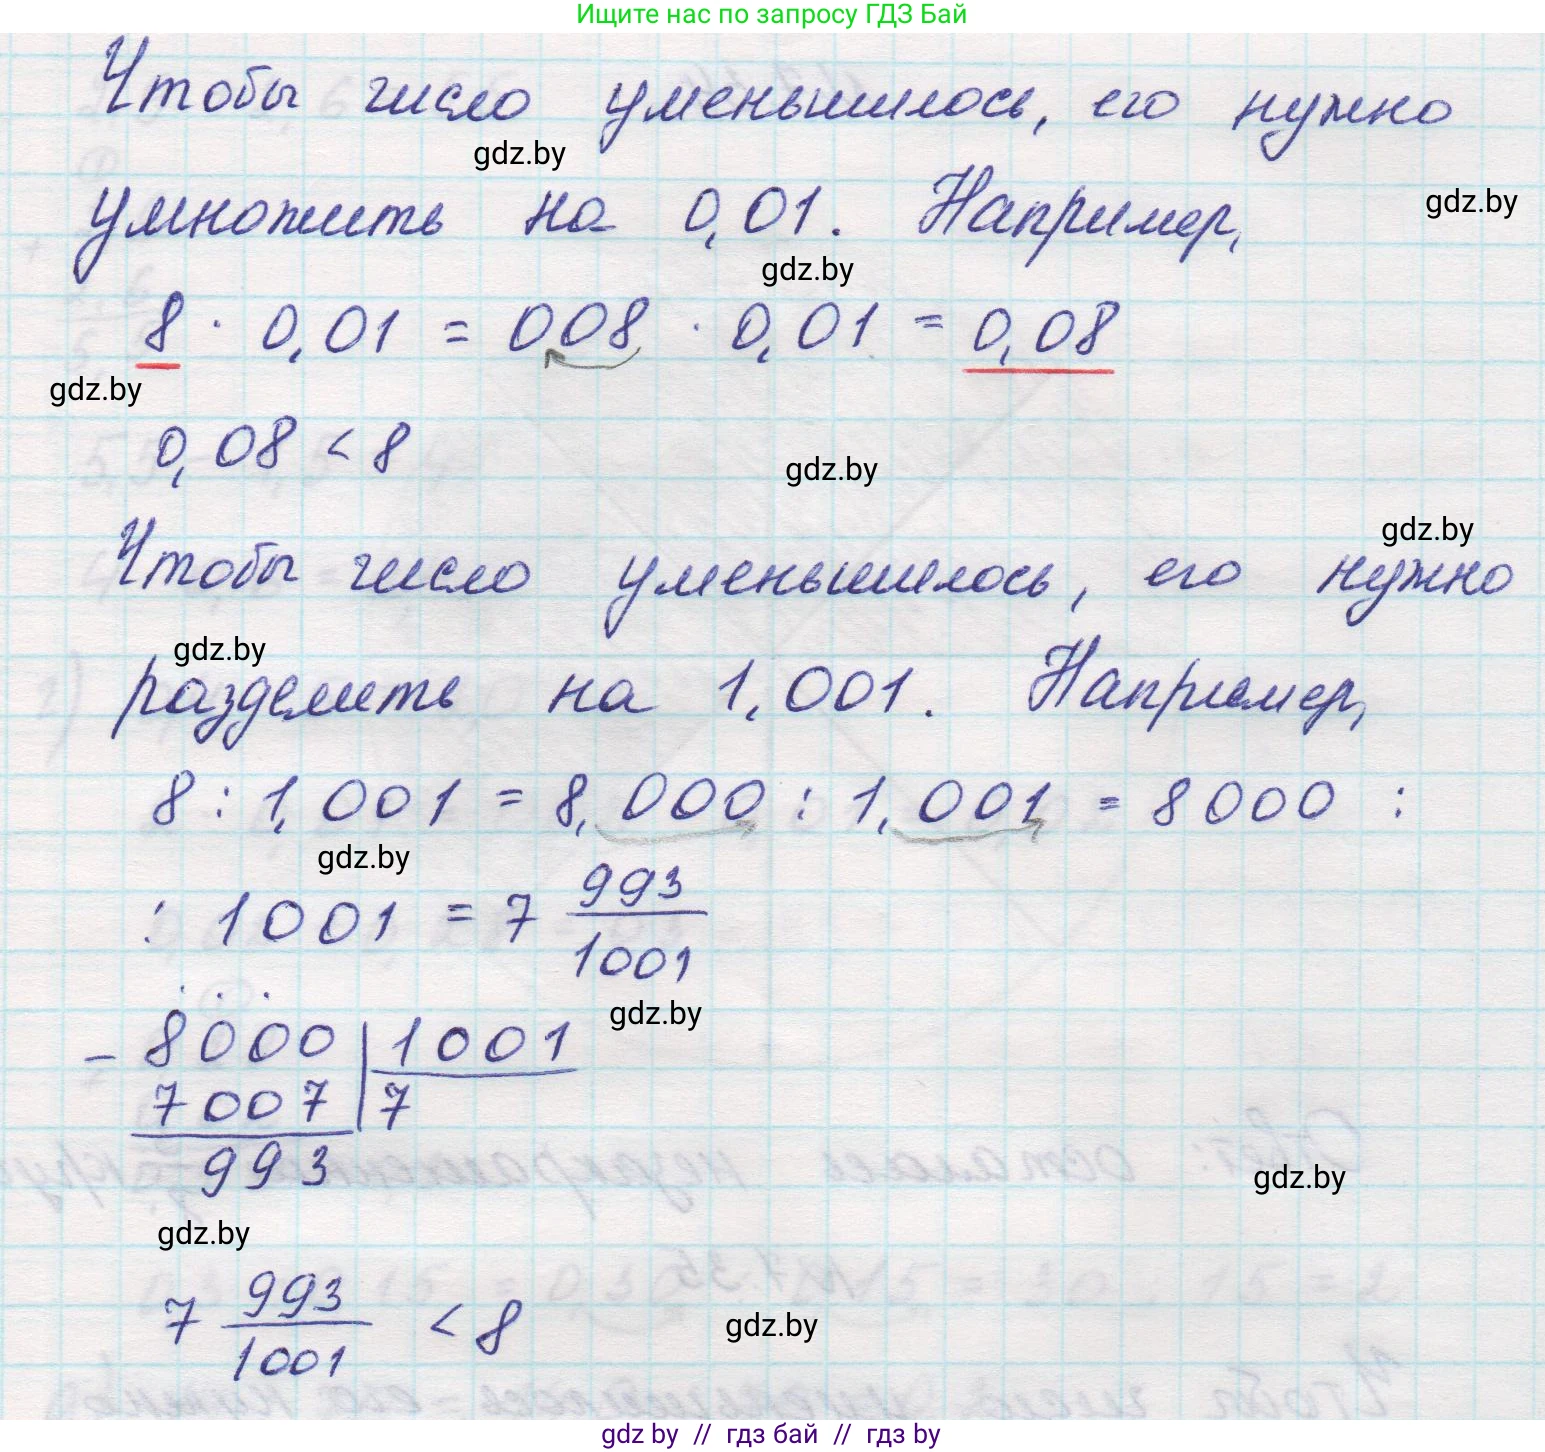 Ищите нас по запросу ГДЗ Бай
Чтобы число уменьшилось, его нужно
gdz.by
умножить на 0,01. Например,
gdz.by
gdz.by
8 · 0,01 = 008 · 0,01 = 0,08
gdz.by
0,08 < 8
gdz.by
gdz.by
Чтобы число уменьшилось, его нужно
gdz.by
разделить на 1,001. Например,
8 : 1,001 = 8,000 : 1,001 = 8000 :
gdz.by
: 1001 = 7 993/1001
gdz.by
- 8000 | 1001
7007 | 7
993
gdz.by
gdz.by
7 993/1001 < 8
gdz.by
gdz by // гдз бай // гдз by